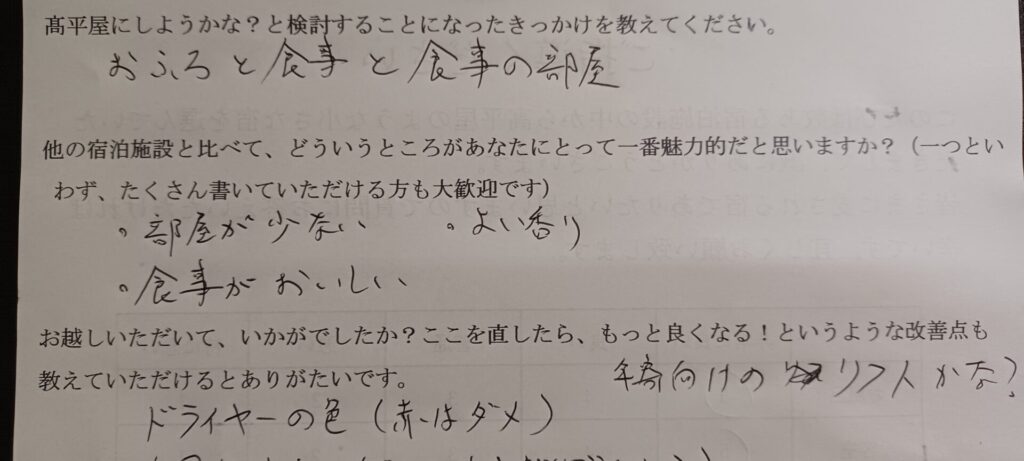 髙平屋にしようかな？と検討することになったきっかけを教えてください。
おふろと食事と食事の部屋
他の宿泊施設と比べて、どういうところがあなたにとって一番魅力的だと思いますか？（一つとい
わず、たくさん書いていただける方も大歓迎です）
。部屋が少ない 。よい香り
。食事がおいしい
お越しいただいて、いかがでしたか？ここを直したら、もっと良くなる！というような改善点も
教えていただけるとありがたいです。
年寄向けの リフトかな？
ドライヤーの色（赤はダメ）